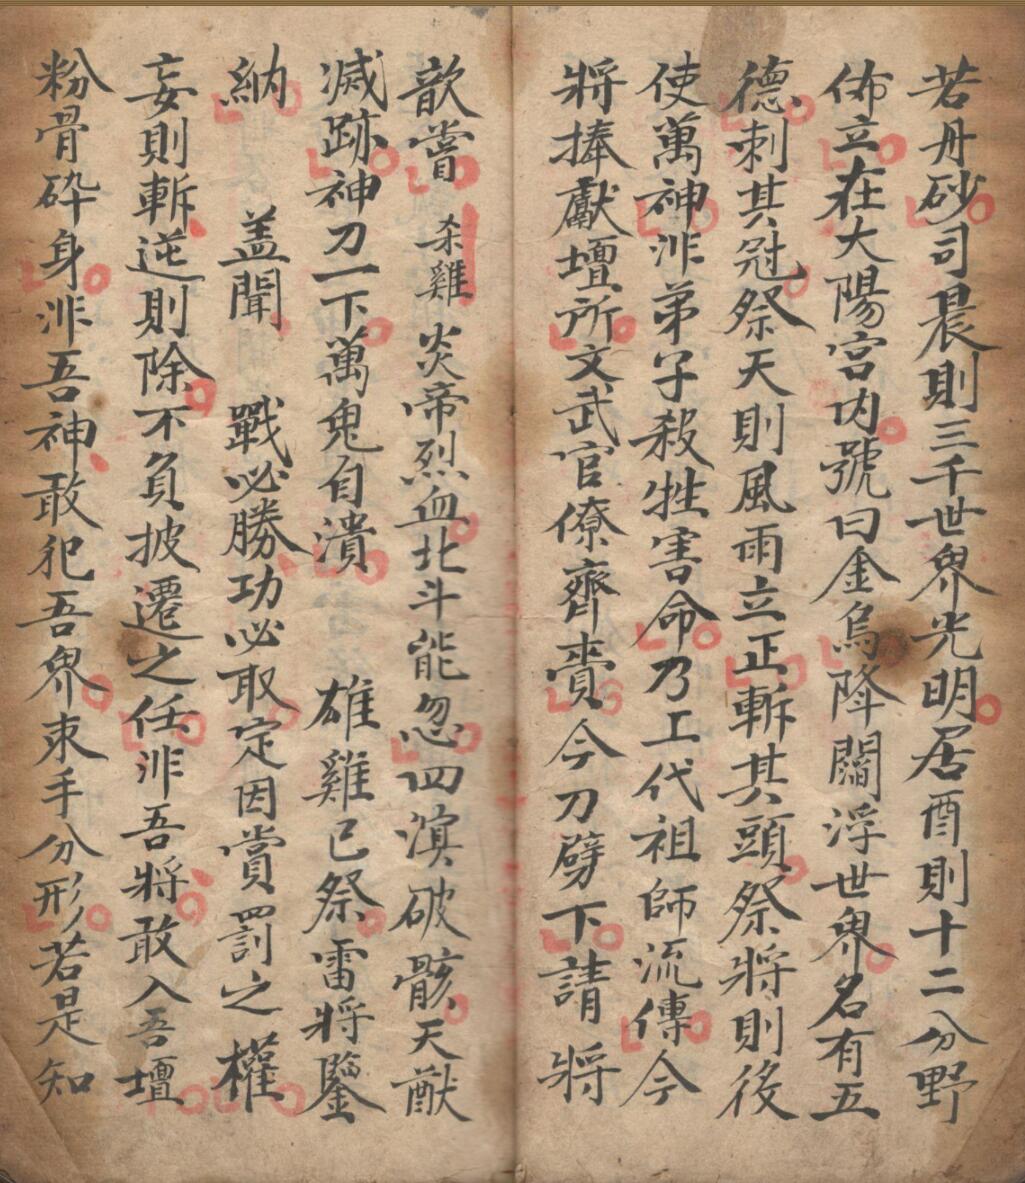 若丹砂司晨則三千世界光明居酉則十二分野
佈立在大陽宮内號曰金烏降閻浮世界名有五
德刺其冠祭天則風雨立正斬其頭祭將則後
使萬神非弟子殺牲害命乃工代祖師流傳今
將捧獻壇所文武官僚齊賫今刀劈下請將
歆嘗 杀雞 炎帝烈血北斗能忽四溟破骸天猷
滅跡神刀一下萬鬼自潰 雄雞已祭雷將鑒
納 盖聞 戰必勝功必取定因賞罰之權
妄則斬逆則除不負披遷之任非吾將敢入吾壇
粉骨碎身非吾神敢犯吾界束手分形若是知